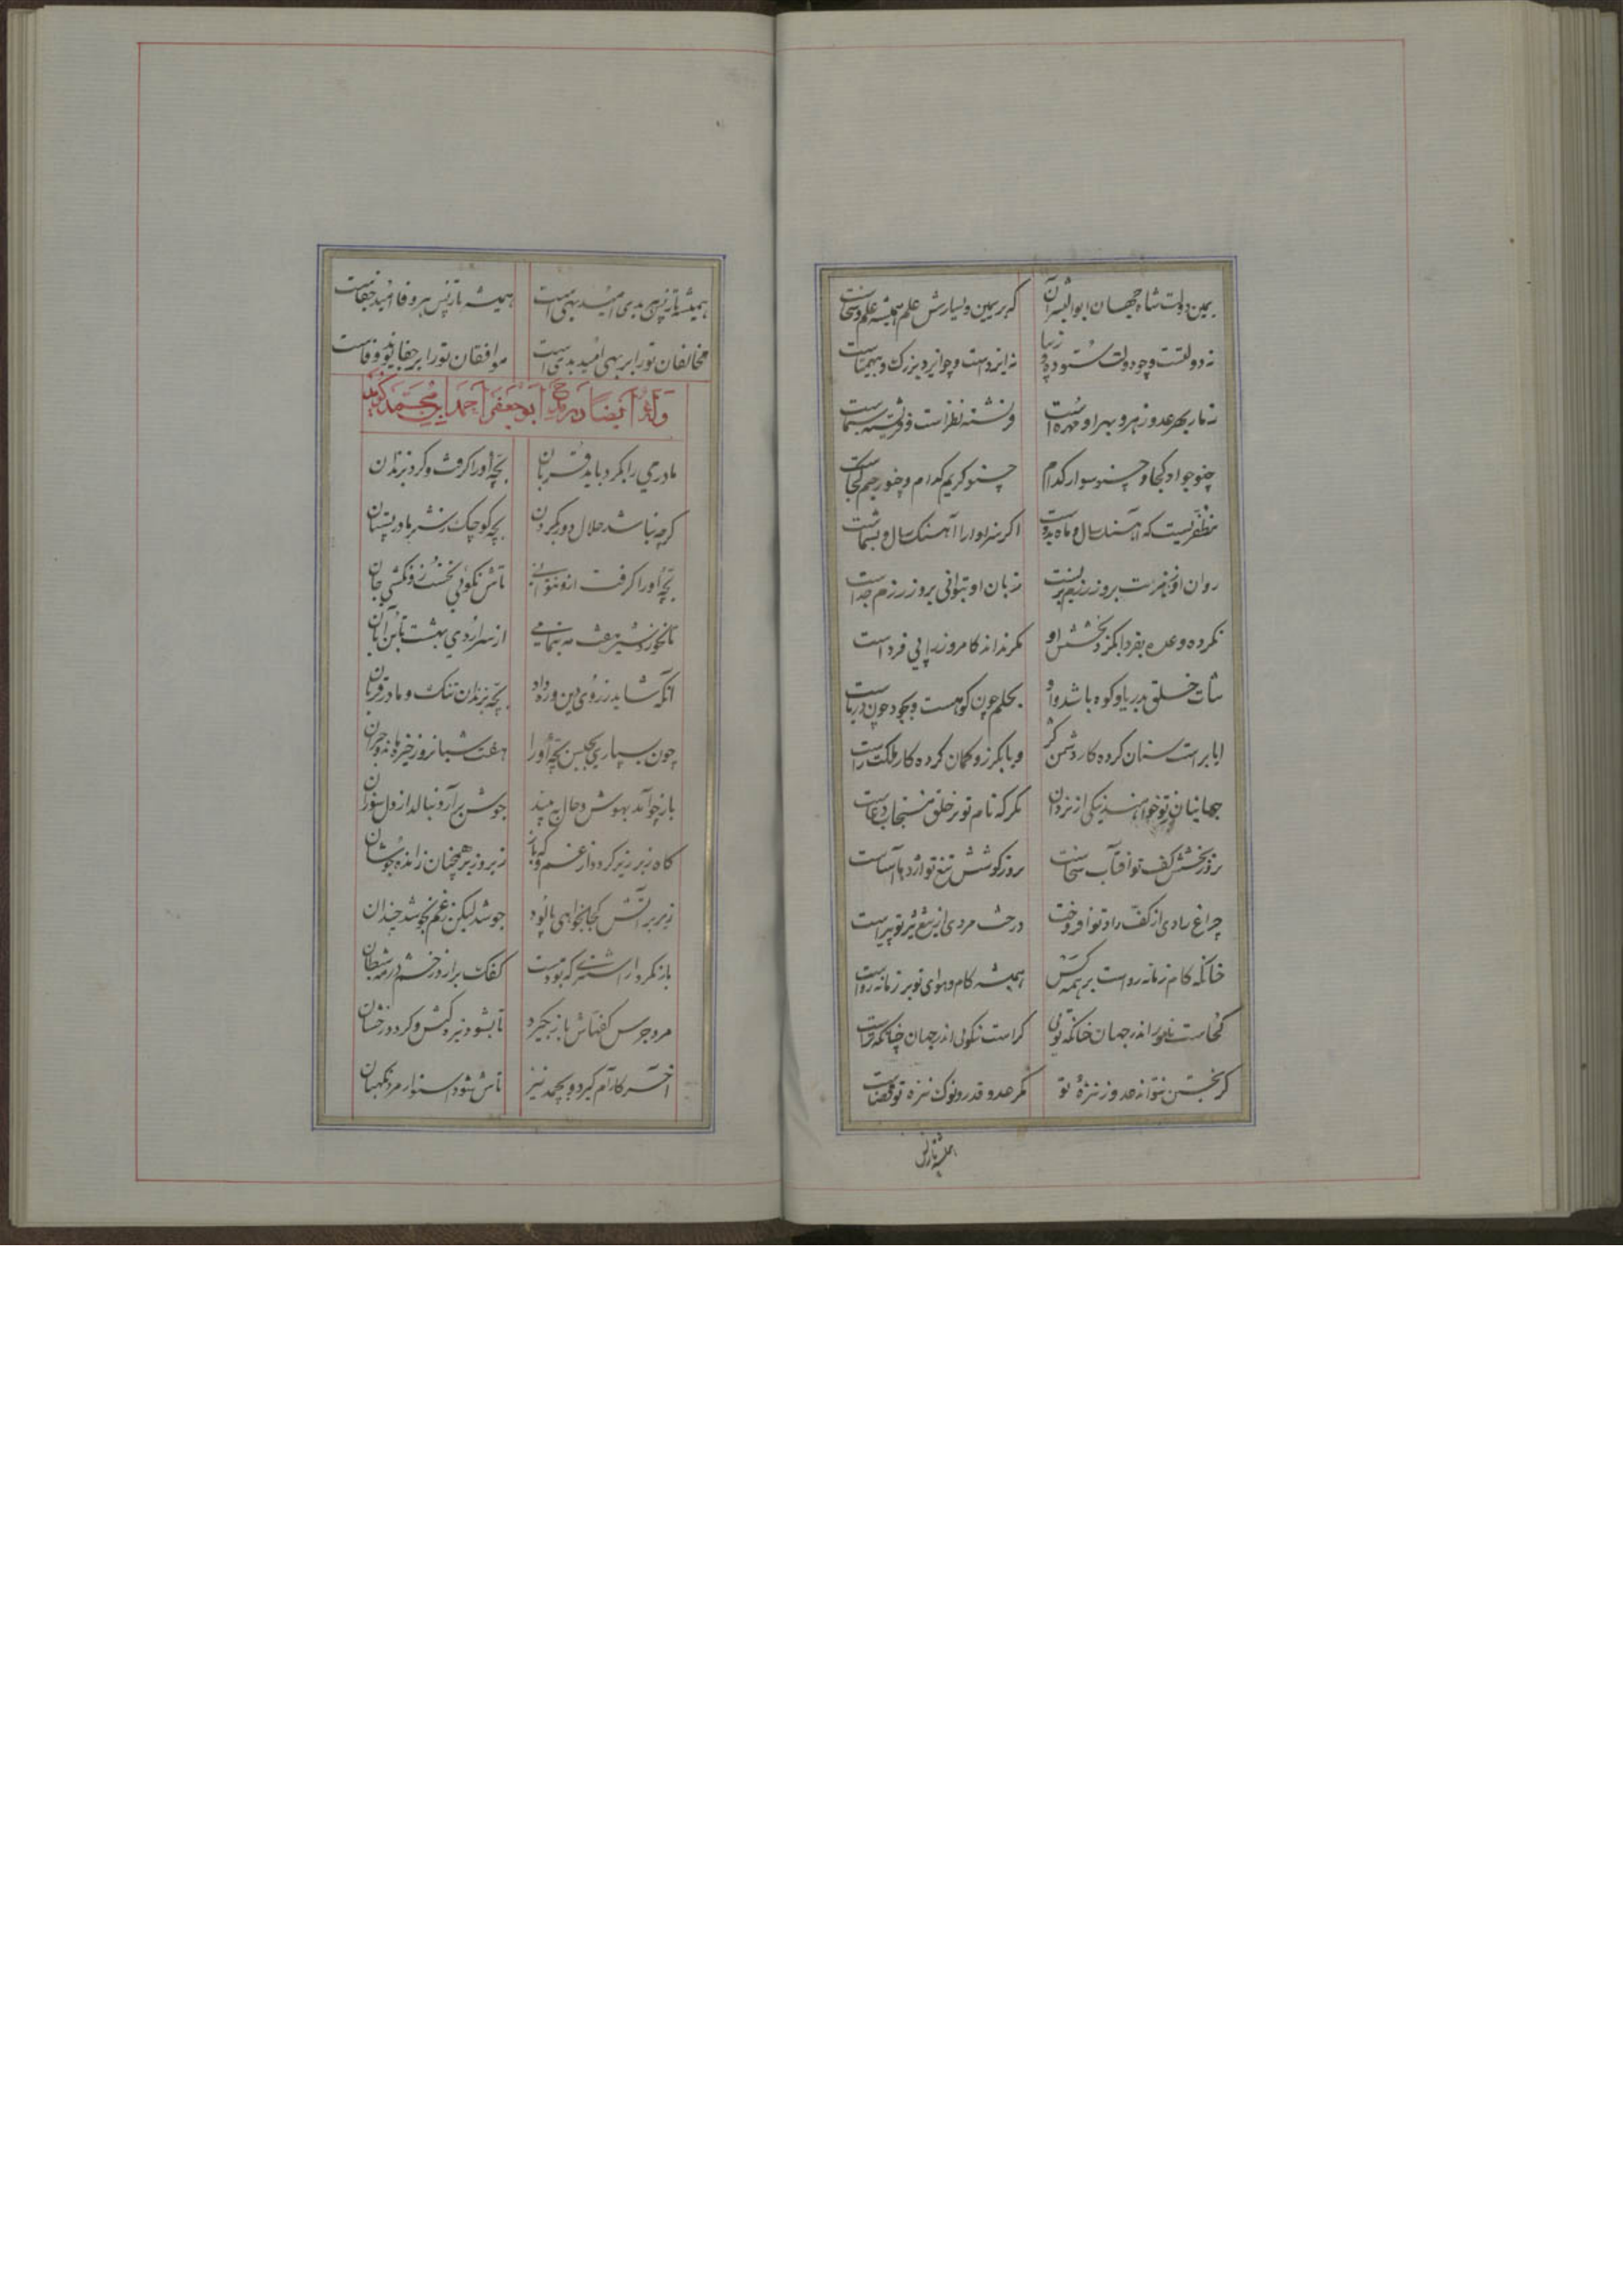 یمین دولت شاه جهان ابوالیسر آن که بر یمین و یسارش علم همیشه علم و سخاست
نه دولتست و چو دولت ستوده و زیبا نه ایزدست و چو ایزد بزرک و بیهمتاست
نه مار بهر عدو زهر و بهر او مهره است فرشته نظر است و فریشته سیماست
چنو جواد کجا و چنو سوار کدام چنو کریم کدام و چنو رحیم کجاست
مظفریست که آهنک سال و ماه بدوست اکر سزاوار آهنک سال و
روان او بروز رزیم زبان او بتوانی بروز رزم جداست
نکرده وعده بفردا مکر ز بخشش او مکر نداند کامروز را پی فرداست
ثبات خلق بدریا و کوه باشد و او بحلم چون کوهست و بجود چون دریاست
ایا براست سنان کرده کار دشمن کژ و یا بکرز و کمان کرده کار ملکت راست
جهانیان تو خواهند نیکی از یزدان مکر که نام تو بر خلق مستجاب دعاست
بروز بخشش کف تو آفتاب سخاست بروز کوشش تیغ تو اژدها آساست
چراغ رادی از کف راد تو افروخت درخت مردی از تیغ تیز تو پیراست
چنانکه کام زمانه رواست بر همه کس همیشه کام و هوای تو بر زمانه رواست
کجاست نامور اندر جهان چنانکه تویی کراست نیکوئی اندر جهان چنانکه تراست
کریختن نتواند عدو ز نیزه تو مکر عدو قدر و نوک نیزه تو قضاست
همیشه تا ز پس
همیشه تا ز پس هر بدی امید بهی است همیشه تا ز پس هر وفا امید جفاست
مخالفان تو را بر بهی امید بدی است موافقان تو را بر جفا نوید وفاست
وله ایضا در مدح ابوجعفر احمد ابن محمد کوید
مادر می را بکرد باید قربان بچه او را کرفت و کرد بزندان
کرچه نباشد حلال دور بکردن بچه کوچک ز شیر مادر و پستان
بچه او را کرفت ازو نتوانی تاش نکوبی نخست و زو نکشی جان
تا نخورد شیر هفت مه بتمامی از سر اردی بهشت تا بن آبان
آنکه شاید ز روی دین و ره داد بچه بزندان تنک و مادر قربان
چون بسپاری بحبس بچه او را هفت شبانروز خیره ماند و حیران
باز چو آید بهوش و حال به بیند جوش برآرد بنالد از دل سوزان
کاه زبر زیر کردد از غم و که باز زیر و زبر همچنان ز انده جوشان
زر بر آتش کجا بخواهی پالود جوشد لیکن ز غم نجوشد چندان
باز بکردار اشتری که بود مست کفک برآرد ز خشم و راند شیطان
مرد حرس کفهاش باز بچیرد تا بشود تیره کیش و کردد رخشان
آخر کارآم کیرد و نچخد نیز تاش شود استوار مرد نکهبان